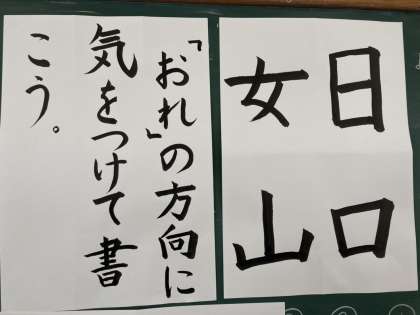 日口
女山
「おれ」の方向に
気をつけて書
こう。